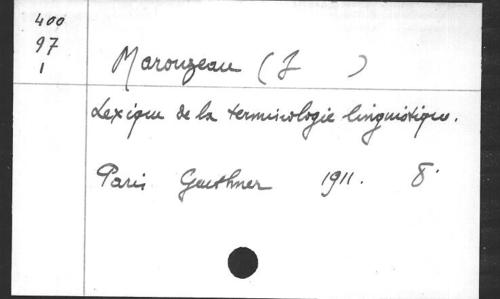 400
97
1
Marouzeau (J )
Lexique de la terminologie linguistique.
Paris Geuthner 1911. 8°